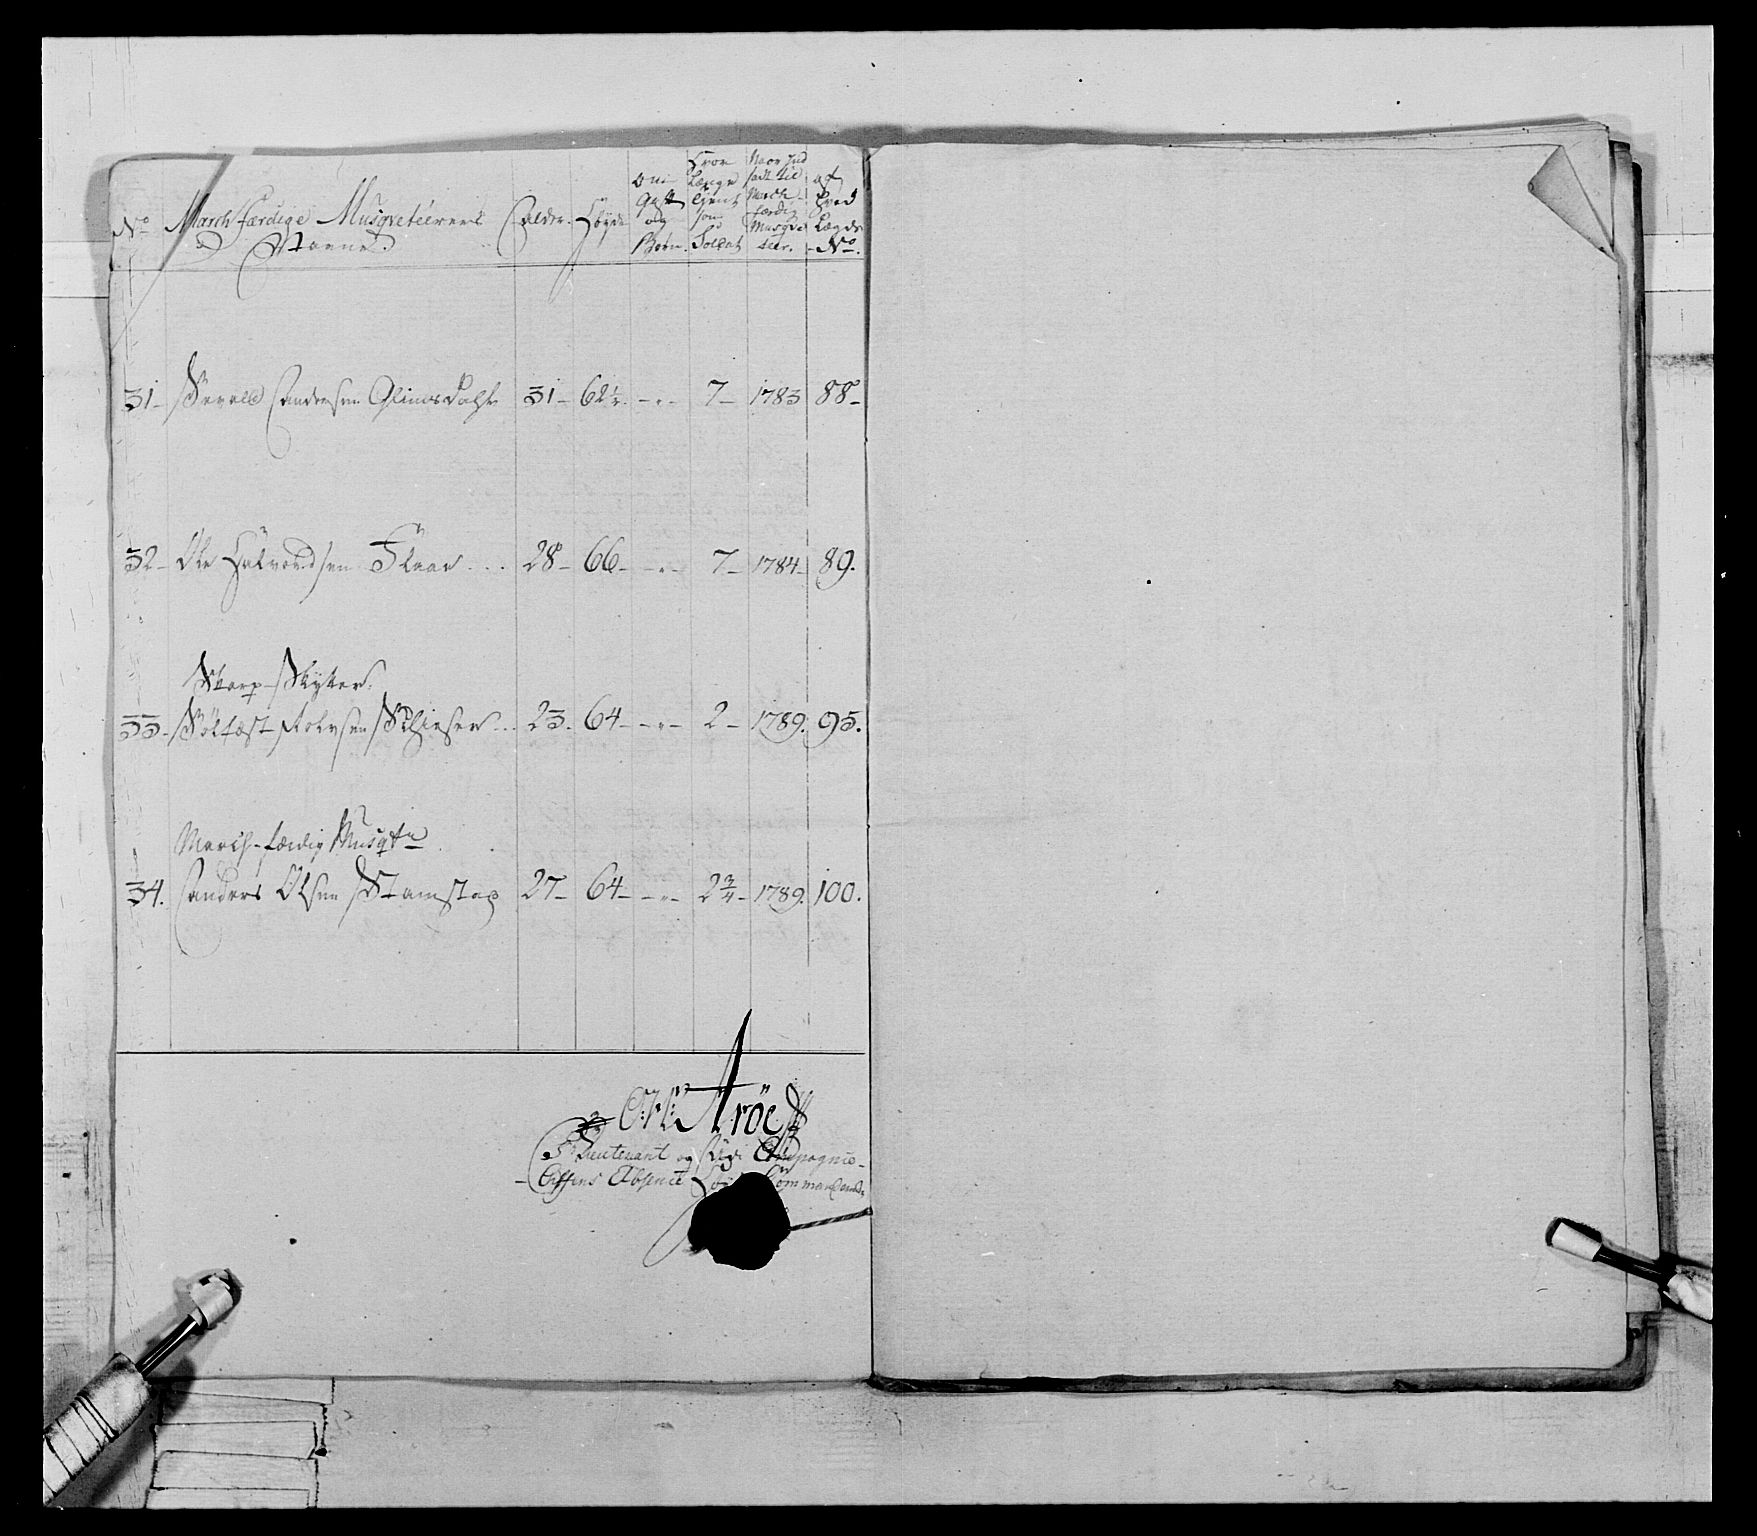 No March færdige Musqveteerers Navne. Alder. Høyde om Gift og Børn. Hvor Længe tjent som Soldat Naar Indsadt til March færdig Musqveteer. af hvad Lægds No.
31- Andersen Glimsdahl 31- 62½ - „ - 7- 1783 88-
32- Ole Halvordsen Flaae . . . 28- 66- - „ - 7- 1784- 89.
Skarp-Skytter,
33- 23. 64- - „ - 2- 1789. 95.
March-færdig Musqtr
34. Anders Olsen Stamstap 27- 64- - „ - 2¾- 1789. 100.
Aröe
Lieutenant og udi Compagnie-
Chefens Absence Commanderende